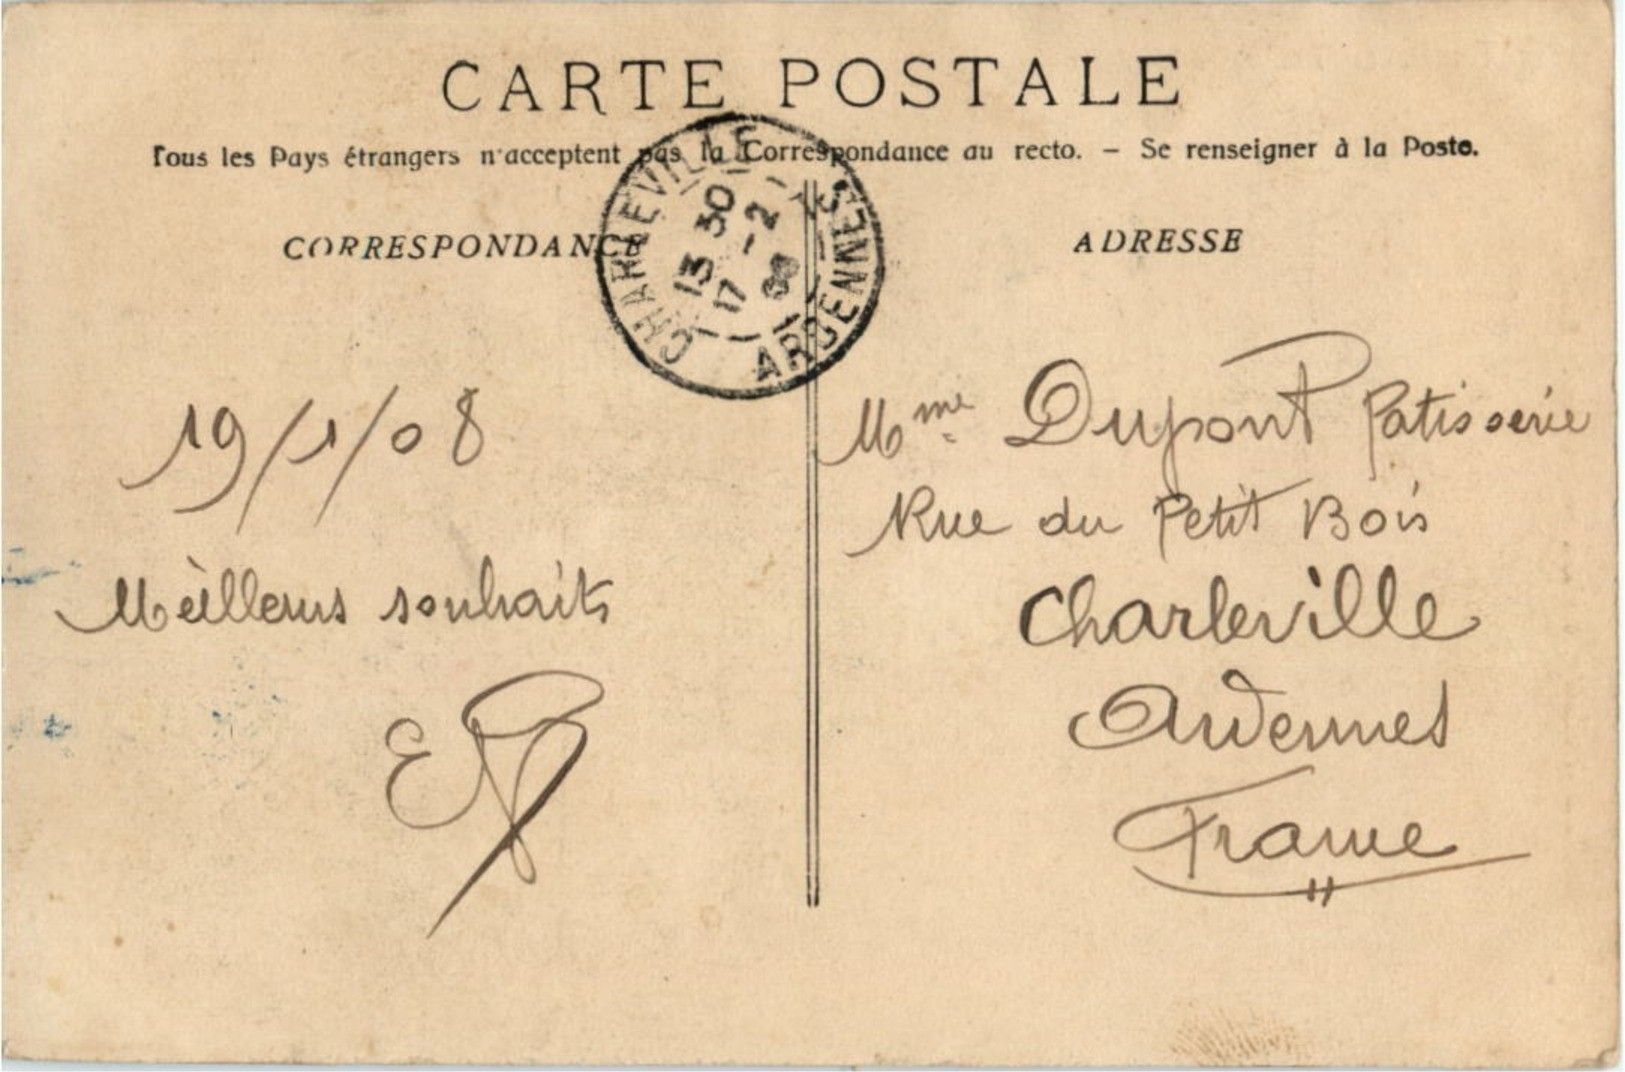 CARTE POSTALE
Tous les Pays étrangers n'acceptent pas la Correspondance au recto. – Se renseigner à la Poste.
CORRESPONDANCE
ADRESSE
CHARLEVILLE
13 30
17 -2
08
ARDENNES
19/1/08
Meilleurs souhaits
Mme Dupont Patisserie
Rue du Petit Bois
Charleville
Ardennes
France